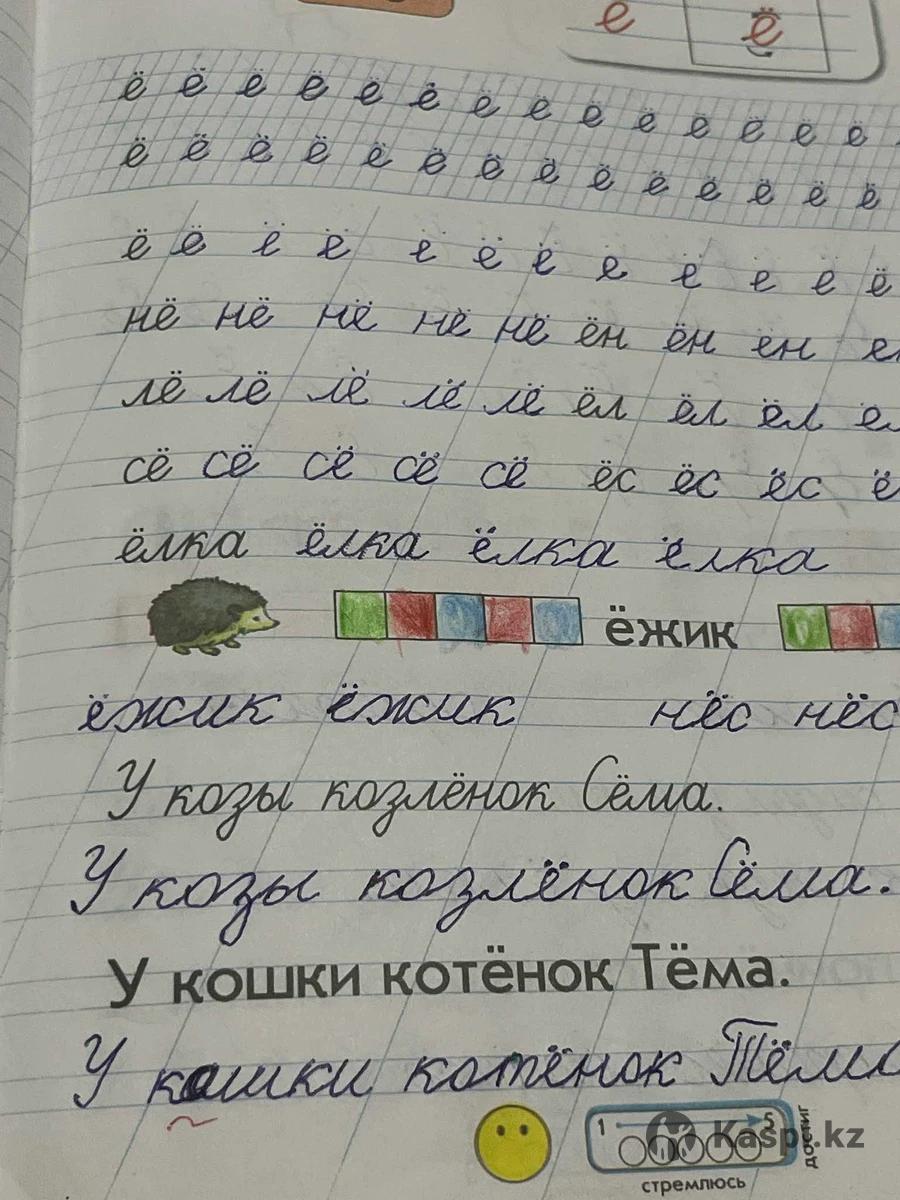 ё ё
ё ё ё ё ё ё ё ё ё ё ё ё ё ё
ё ё ё ё ё ё ё ё ё ё ё ё ё ё
ё ё ё ё ё ё ё ё ё ё ё ё
нё нё нё нё нё ён ён ён
лё лё лё лё лё ёл ёл ёл
сё сё сё сё сё ёс ёс ёс ё
ёлка ёлка ёлка ёлка
ёжик
ёжик ёжик нёс нёс
У козы козлёнок Сёма.
У козы козлёнок Сёма.
У кошки котёнок Тёма.
У кошки котёнок Тёма
1 5
стремлюсь
достиг
Kaspi.kz